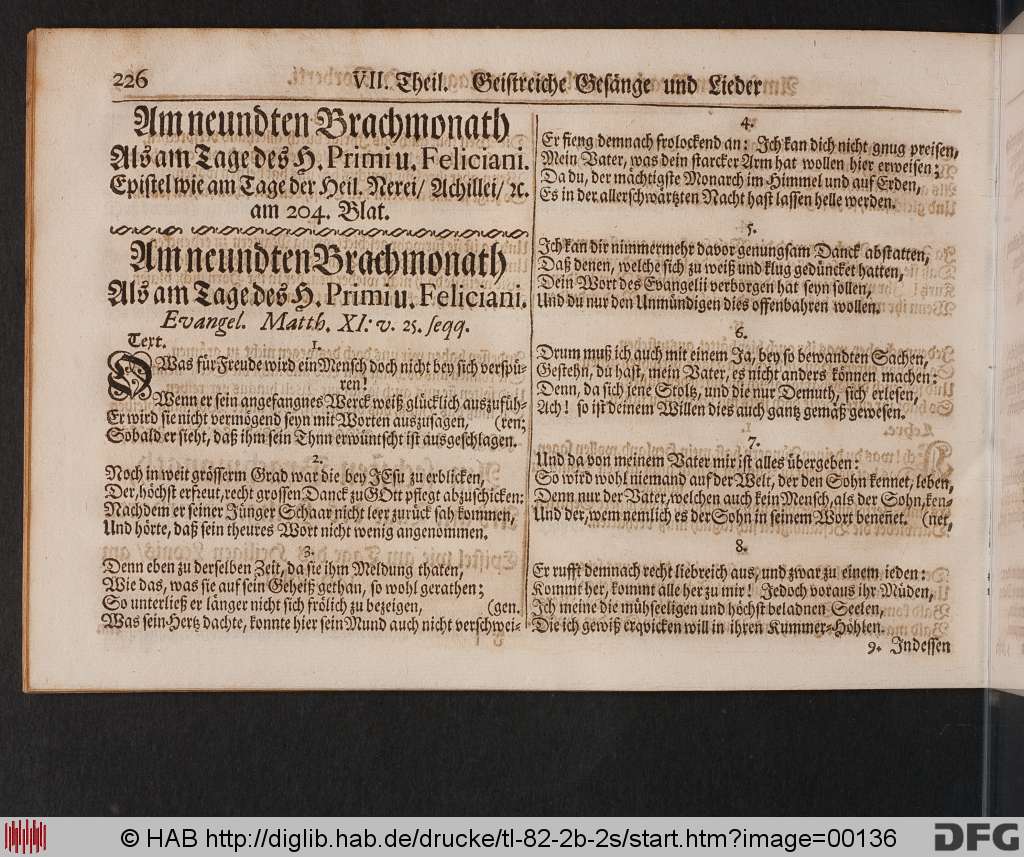 226
VII. Theil. Geistreiche Gesänge und Lieder
Am neundten Brachmonath
Als am Tage des H. Primi u. Feliciani.
Epistel wie am Tage der Heil. Nerei/ Achillei/ ꝛc.
am 204. Blat.
Am neundten Brachmonath
Als am Tage des H. Primi u. Feliciani.
Evangel. Matth. XI: v. 25. seqq.
Text.
1.
Was für Freude wird ein Mensch doch nicht bey sich verspü-
ren!
Wenn er sein angefangnes Werck weiß glücklich auszufüh-
Er wird sie nicht vermögend seyn mit Worten auszusagen, (ren;
Sobald er sieht, daß ihm sein Thun erwünscht ist ausgeschlagen.
2.
Noch in weit grösserm Grad war die bey JEsu zu erblicken,
Der, höchst erfreut, recht grossen Danck zu GOtt pflegt abzuschicken:
Nachdem er seiner Jünger Schaar nicht leer zurück sah kommen,
Und hörte, daß sein theures Wort nicht wenig angenommen.
3.
Denn eben zu derselben Zeit, da sie ihm Meldung thaten,
Wie das, was sie auf sein Geheiß gethan, so wohl gerathen;
So unterließ er länger nicht sich frölich zu bezeigen, (gen.
Was sein Hertz dachte, konnte hier sein Mund auch nicht verschwei-
4.
Er fieng demnach frolockend an: Ich kan dich nicht gnug preisen,
Mein Vater, was dein starcker Arm hat wollen hier erweisen;
Da du, der mächtigste Monarch im Himmel und auf Erden,
Es in der allerschwärtzten Nacht hast lassen helle werden.
5.
Ich kan dir nimmermehr davor genungsam Danck abstatten,
Daß denen, welche sich zu weiß und klug gedüncket hatten,
Dein Wort des Evangelii verborgen hat seyn sollen,
Und du nur den Unmündigen dies offenbahren wollen.
6.
Drum muß ich auch mit einem Ja, bey so bewandten Sachen,
Gestehn, du hast, mein Vater, es nicht anders können machen:
Denn, da sich jene Stoltz, und die nur Demuth, sich erlesen,
Ach! so ist deinem Willen dies auch gantz gemäß gewesen.
7.
Und da von meinem Vater mir ist alles übergeben:
So wird wohl niemand auf der Welt, der den Sohn kennet, leben,
Denn nur der Vater, welchen auch kein Mensch, als der Sohn, ken-
Und der, wem nemlich es der Sohn in seinem Wort beneñet. (net,
8.
Er rufft demnach recht liebreich aus, und zwar zu einem ieden:
Kommt her, kommt alle her zu mir! Jedoch voraus ihr Müden,
Ich meine die mühseeligen und höchst beladnen Seelen,
Die ich gewiß erqvicken will in ihren Kummer-Höhlen.
9. Indessen
© HAB http://diglib.hab.de/drucke/tl-82-2b-2s/start.htm?image=00136
DFG